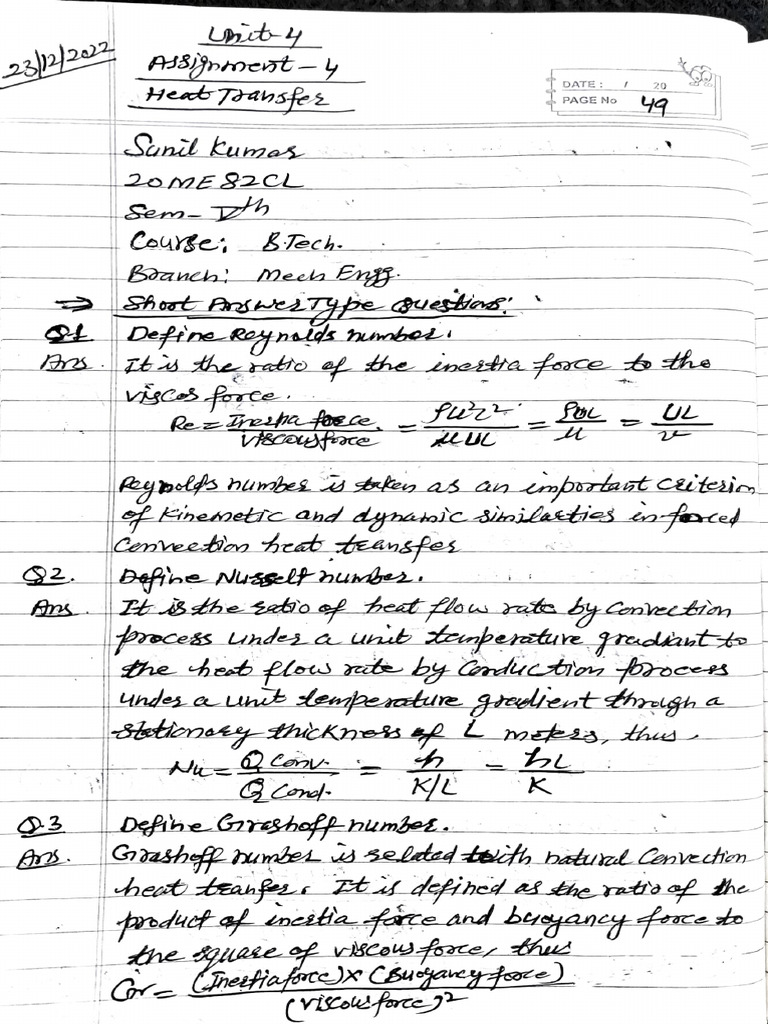 Unit-4
23/12/2022
Assignment-4
Heat Transfer
DATE: / 20
PAGE No 49
Sunil Kumar
20ME82CL
Sem- Vth
Course: B.Tech.
Branch: Mech Engg.
⇒ Short Answer Type Questions:
Q1 Define Reynolds number.
Ans. It is the ratio of the inertia force to the
viscos force.
Re = Inertia force / viscous force = ρu²L² / μUL = ρUL / μ = UL / ν
Reynolds number is taken as an important criterion
of kinemetic and dynamic similarties in forced
Convection heat transfer
Q2. Define Nusselt number.
Ans. It is the ratio of heat flow rate by convection
process under a unit temperature gradiant to
the heat flow rate by Conduction process
under a unit temperature gradient through a
stationary thickness of L meters, thus.
Nu = Q Conv. / Q Cond. = h / K/L = hL / K
Q.3 Define Grashoff number.
Ans. Grashoff number is related with natural Convection
heat tranfer. It is defined as the ratio of the
product of inertia force and buoyancy force to
the square of viscous force, thus
Gr = (Inertia force) × (Buoyancy force) / (viscous force)²